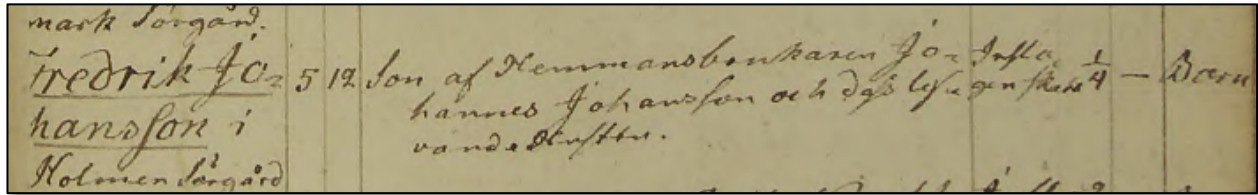 mark Sörgård.
Fredrik Jo=
hansson i
Holmen Sörgård
5 12 Son af Hemmansbrukaren Jo=
hannes Johansson och dess
vande Hustru.
1/4 — Barn